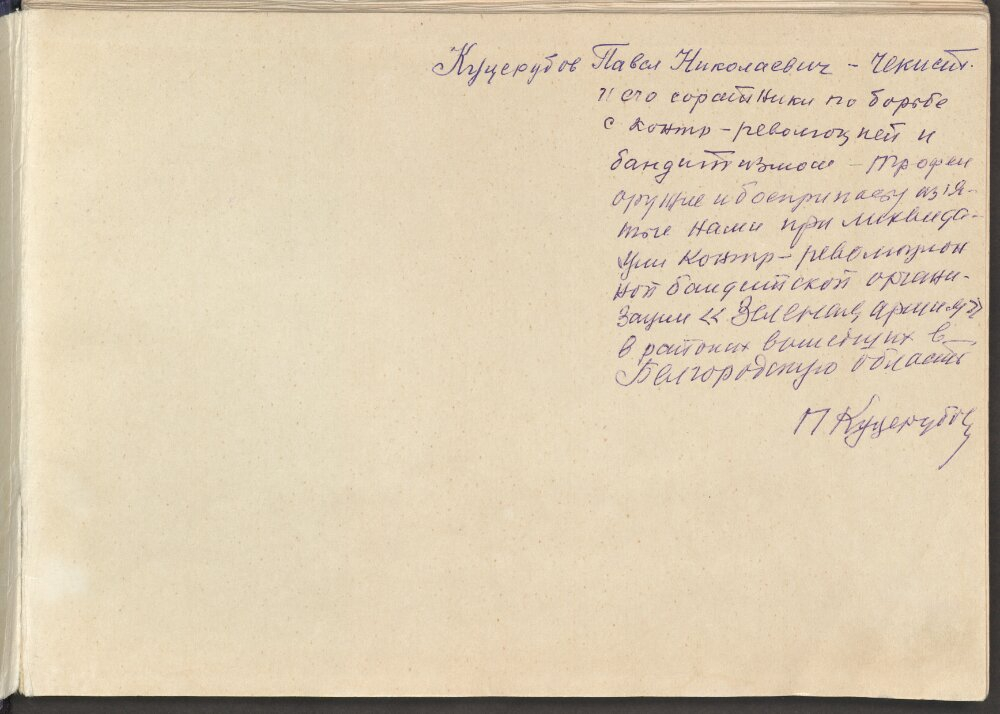 Куцерубов Павел Николаевич – чекист.
и его соратники по борьбе
с контр-революцией и
бандитизмом – трофеи
оружие и боеприпасы взя-
тые нами при ликвида-
ции контр-революцион
ной бандитской органи-
зации « Зеленая армия»
в районах вошедших в
Белгородскую область
П Куцерубов